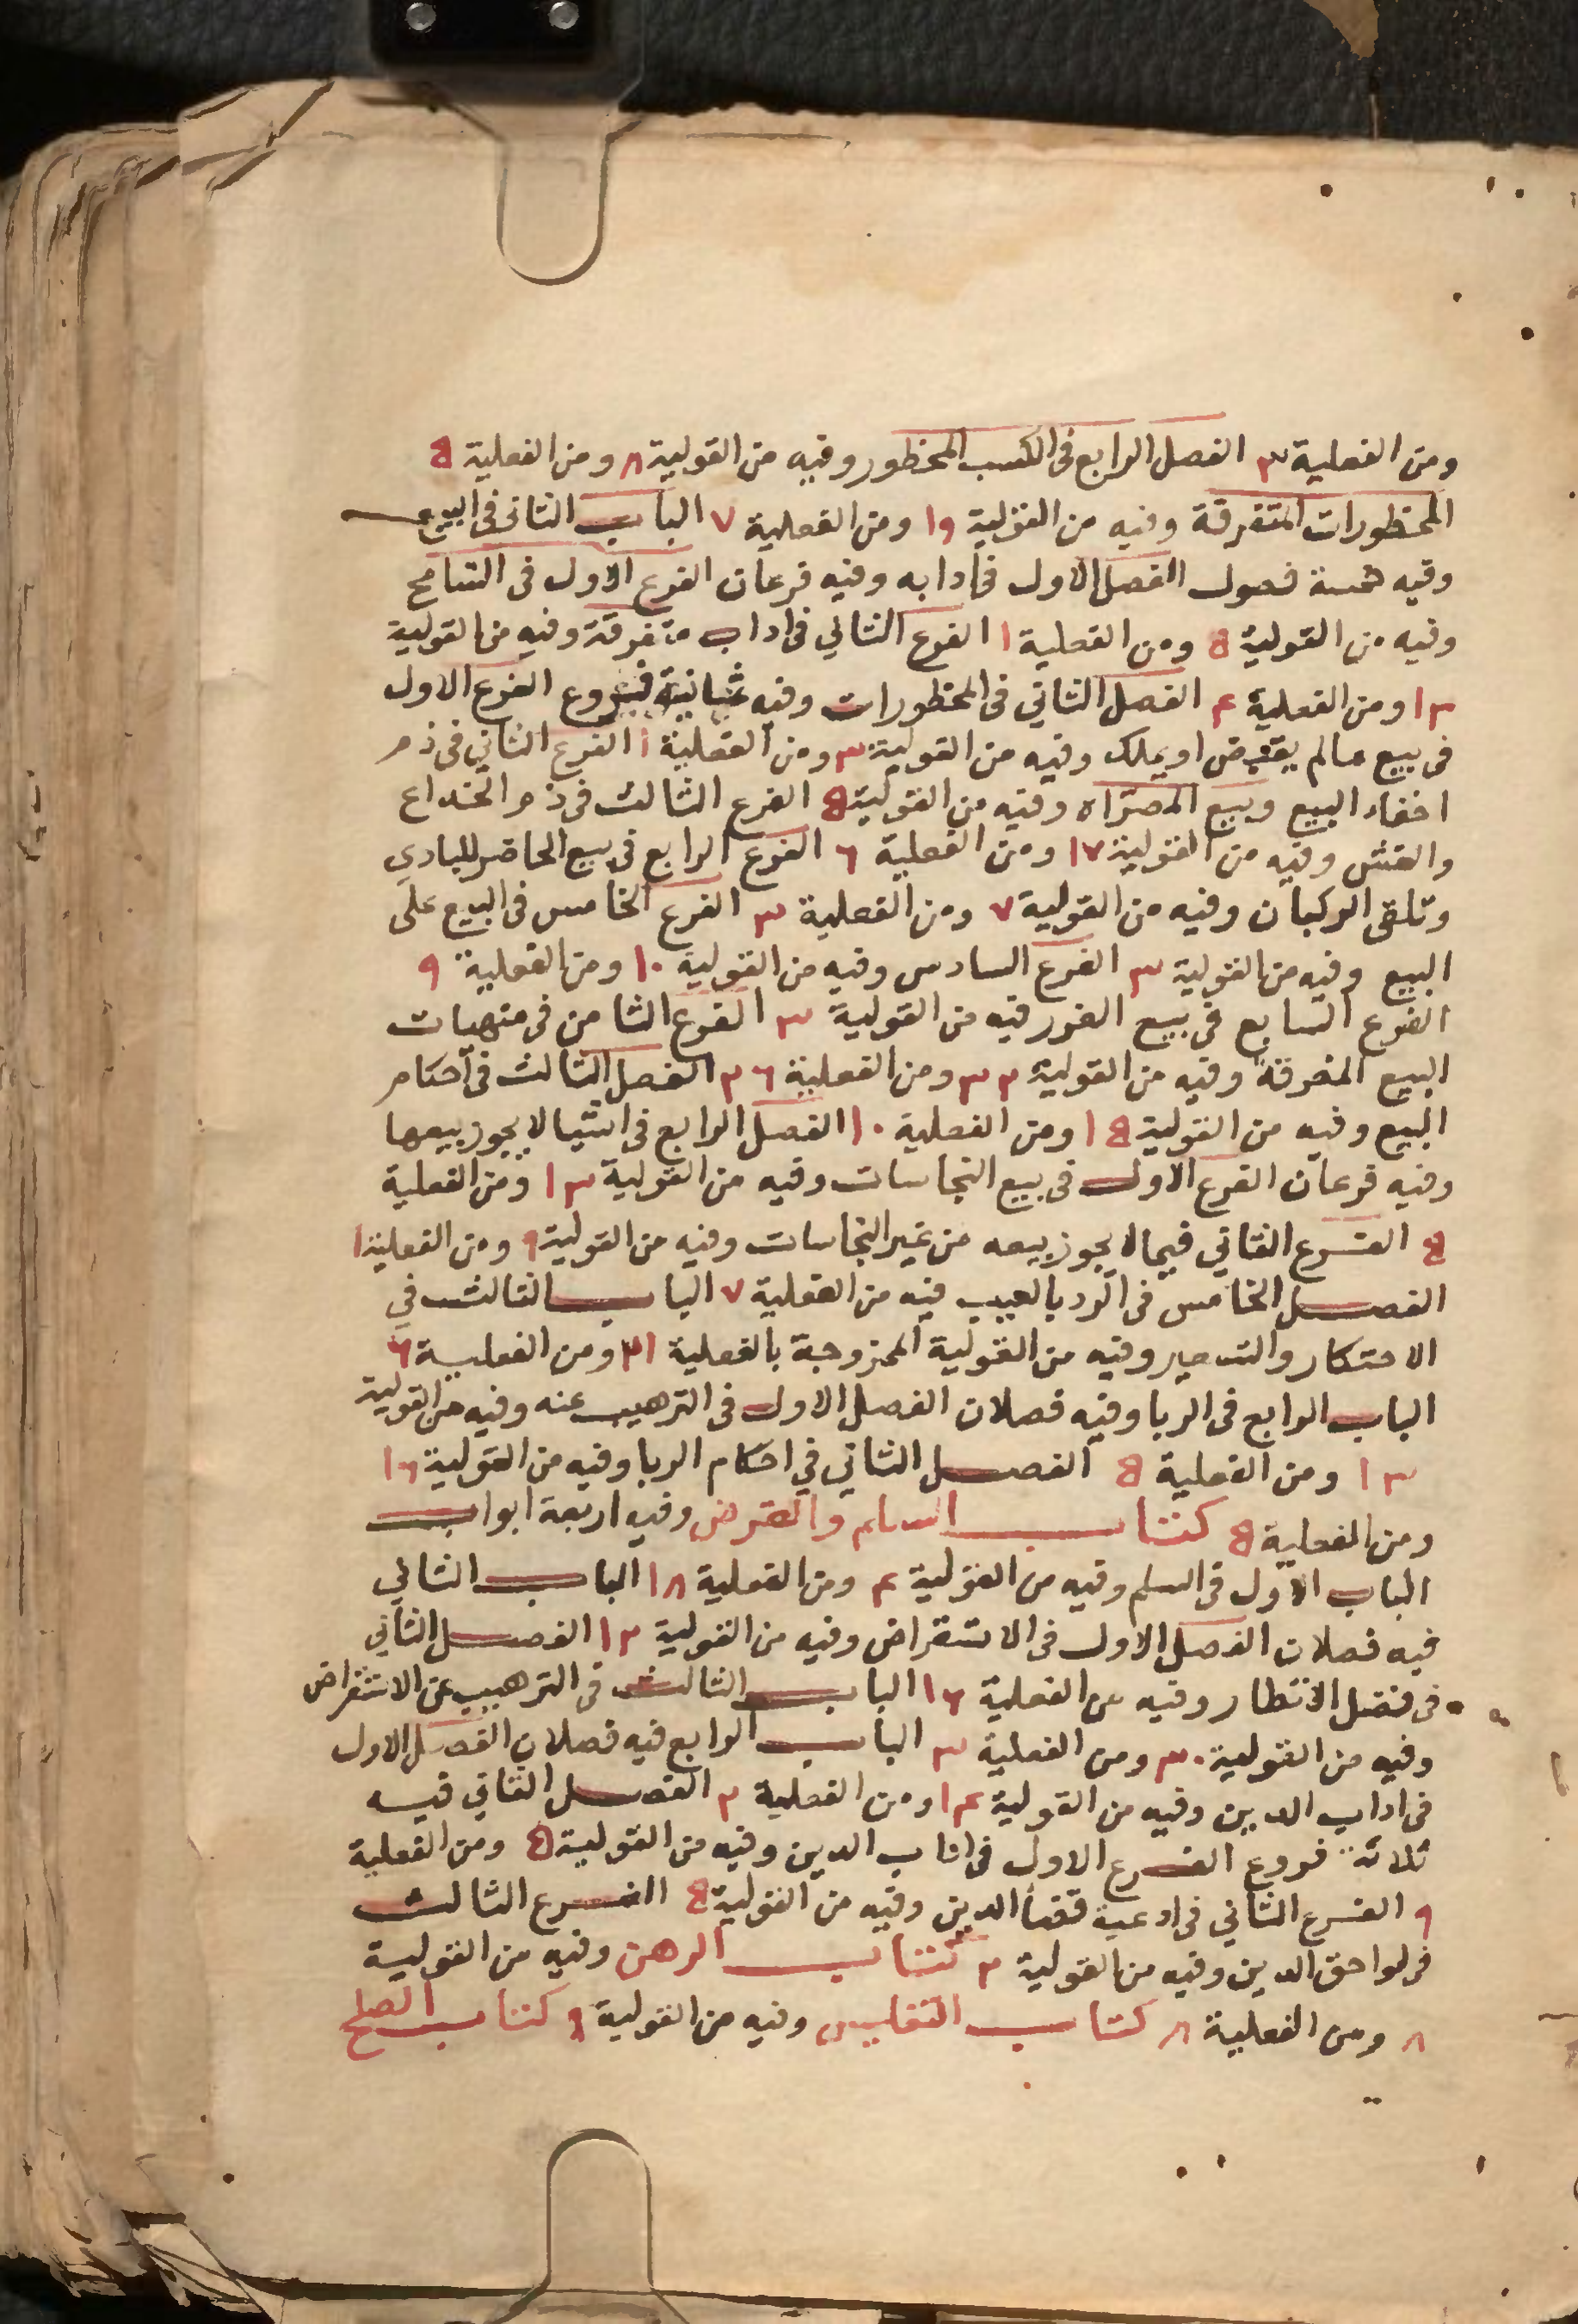 ومن الفعلية ٣ الفصل الرابع فى الكسب المحظور وفيه من القولية ٨ ومن الفعلية ٥
المحظورات المتفرقة وفيه من القولية ١٩ ومن الفعلية ٧ الباب الثانى فى البيع
وفيه خمسة فصول الفصل الاول فى ادابه وفيه فرعان الفرع الاول فى التسامح
وفيه من القولية ٥ ومن الفعلية ١ الفرع الثاني فى اداب متفرقة وفيه من القولية
١٣ ومن الفعلية ٤ الفصل الثاني فى المحظورات وفيه ثمانية فروع الفرع الاول
فى بيع مالم يقبض او يملك وفيه من القولية ٣ ومن الفعلية ١ الفرع الثاني فى ذم
اخفاء البيع وبيع المصراه وفيه من القولية ٥ الفرع الثالث فى ذم الخداع
والغش وفيه من القولية ١٧ ومن الفعلية ٦ الفرع الرابع فى بيع الحاضر للبادي
وتلقى الركبان وفيه من القولية ٧ ومن الفعلية ٣ الفرع الخامس فى البيع على
البيع وفيه من القولية ٣ الفرع السادس وفيه من القولية ١٠ ومن الفعلية ٩
الفرع السابع فى بيع الغرر فيه من القولية ٣ الفرع الثامن فى منهيات
البيع المفرقة وفيه من القولية ٣٢ ومن الفعلية ٢٦ الفصل الثالث فى احكام
البيع وفيه من القولية ١٥ ومن الفعلية ١٠ الفصل الرابع فى اشيا لا يجوز بيعها
وفيه فرعان الفرع الاول فى بيع النجاسات وفيه من القولية ١٣ ومن الفعلية
٥ الفرع الثاني فيما لا يجوز بيعه من غير النجاسات وفيه من القولية ٩ ومن الفعلية ١
الفصل الخامس فى الرد بالعيب فيه من الفعلية ٧ الباب الثالث في
الاحتكار والتسعير وفيه من القولية الممزوجة بالفعلية ٢١ ومن الفعلية ٦
الباب الرابع فى الربا وفيه فصلان الفصل الاول فى الترهيب عنه وفيه من القولية
١٣ ومن الفعلية ٥ الفصل الثاني في احكام الربا وفيه من القولية ١٦
ومن الفعلية ٥ كتاب السلم والقرض وفيه اربعة ابواب
الباب الاول فى السلم وفيه من القولية ٤ ومن الفعلية ١٨ الباب الثاني
فيه فصلان الفصل الاول فى الاستقراض وفيه من القولية ١٢ الفصل الثاني
فى فضل الانتظار وفيه من الفعلية ١٦ الباب الثالث فى الترهيب عن الاستقراض
وفيه من القولية ٣٠ ومن الفعلية ٣ الباب الرابع فيه فصلان الفصل الاول
فى اداب الدين وفيه من القولية ١٤ ومن الفعلية ٢ الفصل الثاني فيه
ثلاثة فروع الفرع الاول فى اداب الدين وفيه من القولية ٥ ومن الفعلية
٩ الفرع الثاني فى ادعية قضأ الدين وفيه من القولية ٥ الفرع الثالث
فى لواحق الدين وفيه من القولية ٢ كتاب الرهن وفيه من القولية
٨ ومن الفعلية ٨ كتاب التفليس وفيه من القولية ٩ كتاب الصلح